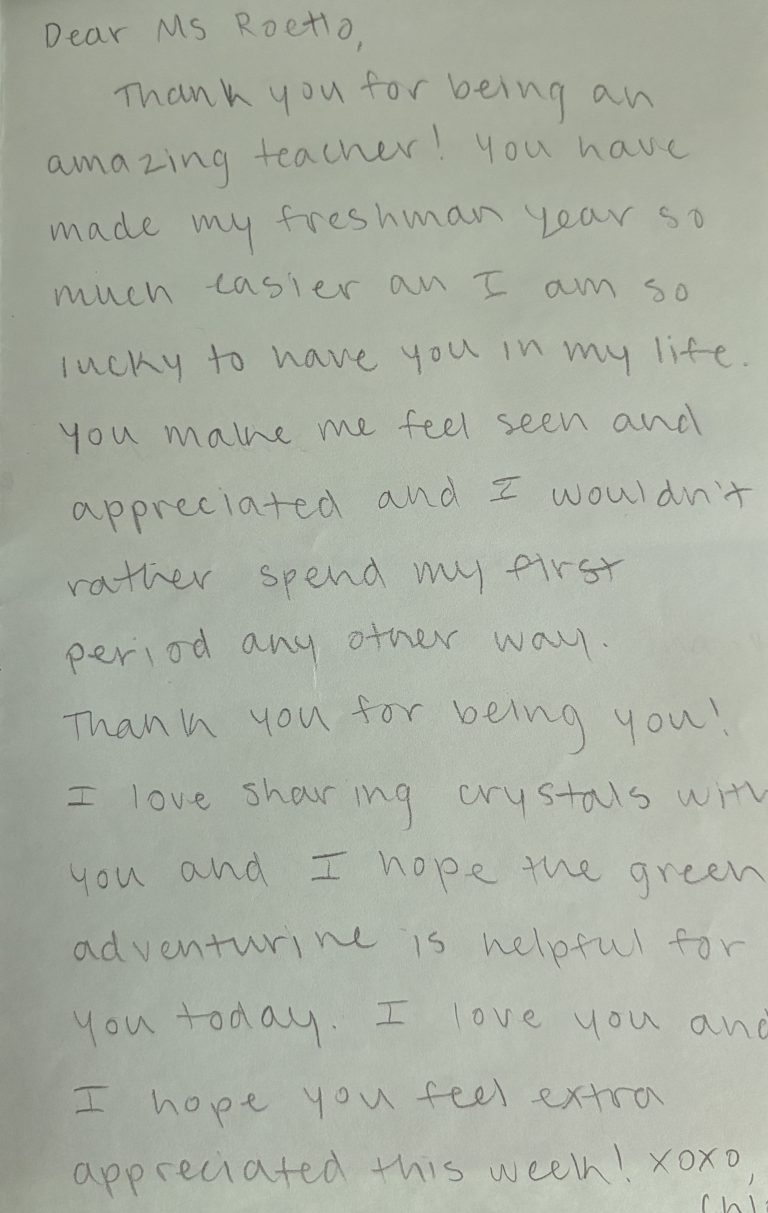 Dear Ms Roetto,
Thank you for being an
amazing teacher! You have
made my freshman year so
much easier an I am so
lucky to have you in my life.
You make me feel seen and
appreciated and I wouldn't
rather spend my first
period any other way.
Thank you for being you!
I love sharing crystals with
you and I hope the green
adventurine is helpful for
you today. I love you and
I hope you feel extra
appreciated this week! xoxo,